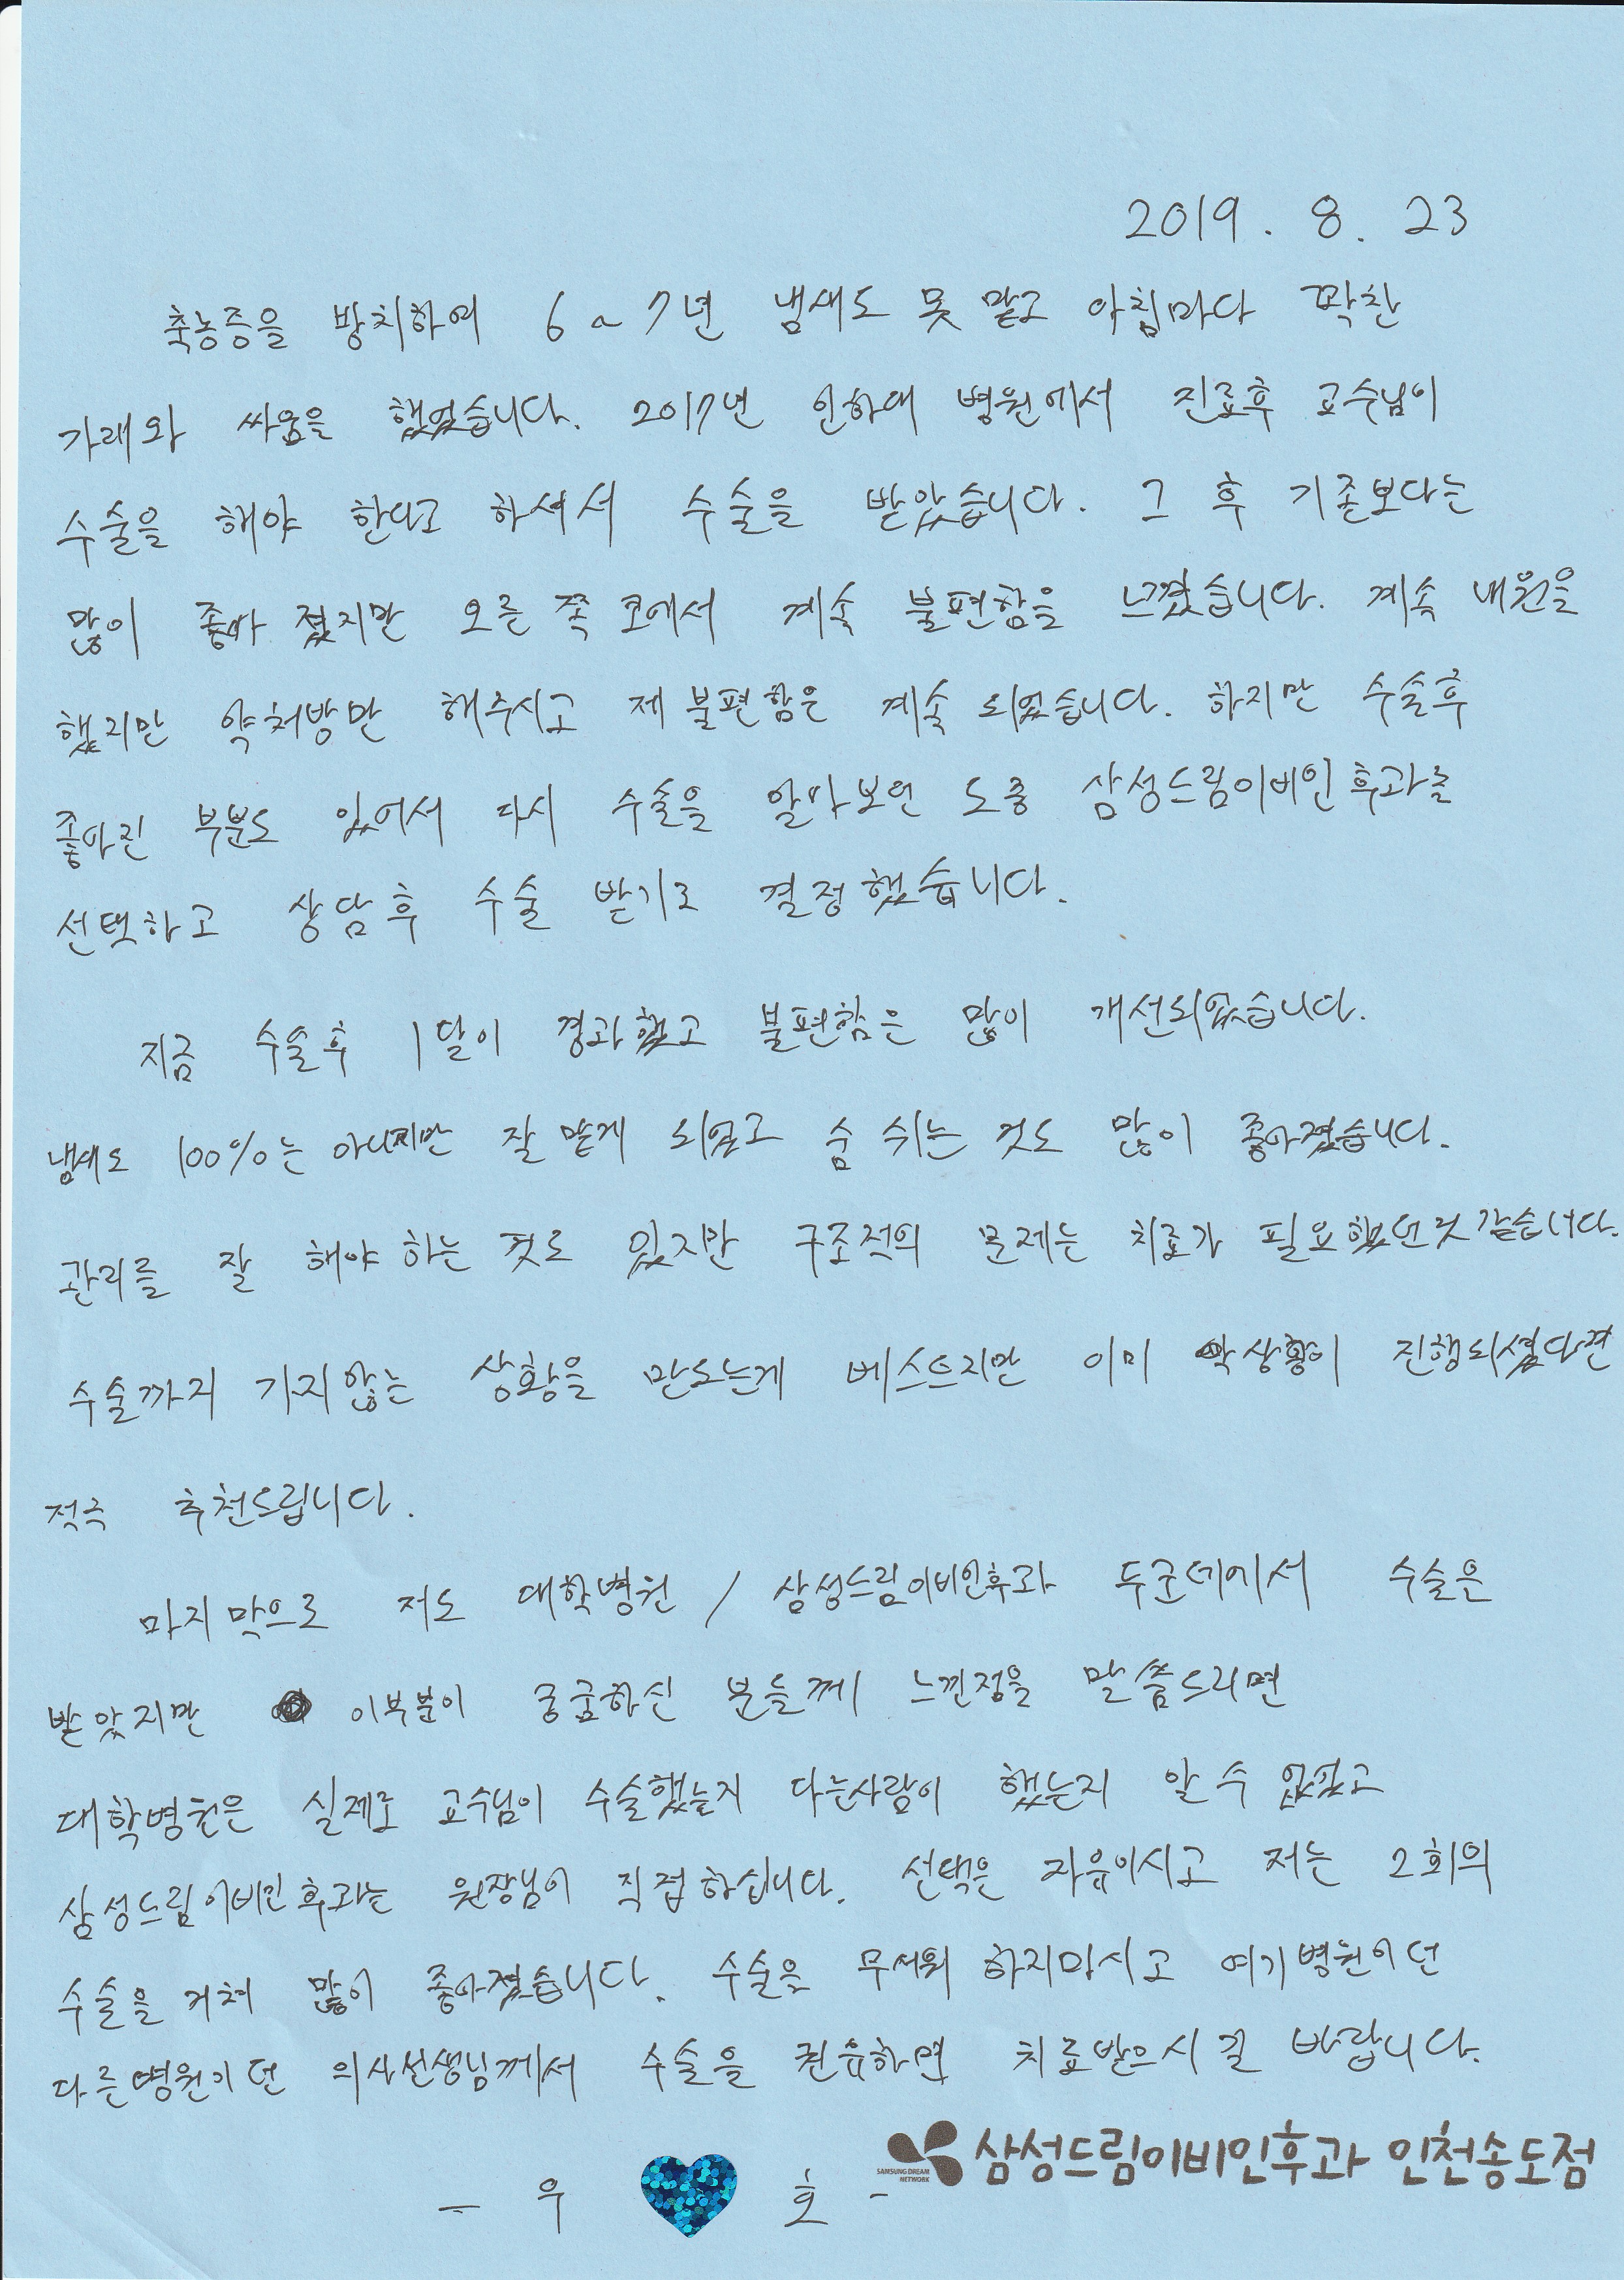 2019. 8. 23
축농증을 방치하여 6~7년 냄새도 못 맡고 아침마다 꽉찬
가래와 싸움을 했었습니다. 2017년 인하대 병원에서 진료후 교수님이
수술을 해야 한다고 하셔서 수술을 받았습니다. 그 후 기존보다는
많이 좋아 졌지만 오른쪽 코에서 계속 불편함을 느꼈습니다. 계속 내원을
했지만 약처방만 해주시고 제 불편함은 계속 되었습니다. 하지만 수술후
좋아진 부분도 있어서 다시 수술을 알아보던 도중 삼성드림이비인후과를
선택하고 상담후 수술 받기로 결정했습니다.
지금 수술후 1달이 경과했고 불편함은 많이 개선되었습니다.
냄새도 100%는 아니지만 잘 맡게 되었고 숨 쉬는 것도 많이 좋아졌습니다.
관리를 잘 해야 하는 것도 있지만 구조적의 문제는 치료가 필요했던것 같습니다.
수술까지 가지않는 상황을 만드는게 베스트지만 이미 상황이 진행되셨다면
적극 추천드립니다.
마지막으로 저도 대학병원 / 삼성드림이비인후과 두군데에서 수술은
받았지만 이부분이 궁굼하신 분들께 느낀점을 말씀드리면
대학병원은 실제로 교수님이 수술했는지 다른사람이 했는지 알 수 없었고
삼성드림이비인후과는 원장님이 직접하십니다. 선택은 자유이시고 저는 2회의
수술을 거쳐 많이 좋아졌습니다. 수술을 무서워 하지마시고 여기병원이던
다른병원이던 의사선생님께서 수술을 권유하면 치료받으시길 바랍니다.
- 우 호 -
SAMSUNG DREAM NETWORK 삼성드림이비인후과 인천송도점